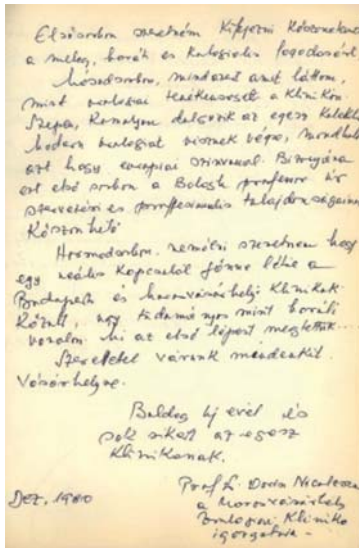 Elsősorban szeretném kifejezni köszönetemet
a meleg, baráti és kollegiális fogadásért
Másodsorban, mindazt amit láttam,
mint urologiai tevékenységet a Klinikán.
Szépen, komolyan dolgozik az egész kollektí
modern urologiát visznek végre, mondhat
azt hogy europiai szinvonal. Bizonyára
ezt első sorban a Balogh professor úr
szervezési és proffesionalis tulajdonságainak
Köszönhető
Harmadsorban, remélni szeretném hogy
egy reális kapcsolat jönne létre a
Budapesti és marosvásárhelyi Klinikák
között, úgy tudományos mint baráti
vonalon. Mi az első lépést megtettük...
Szeretettel várunk mindenkit
Vásárhelyre.
Boldog új évet és
sok sikert az egész
Klinikának.
Prof. Dr. Dorin Nicolescu
Dez, 1980
a Marosvásárhely
Urologiai Klinika
igazgatója -